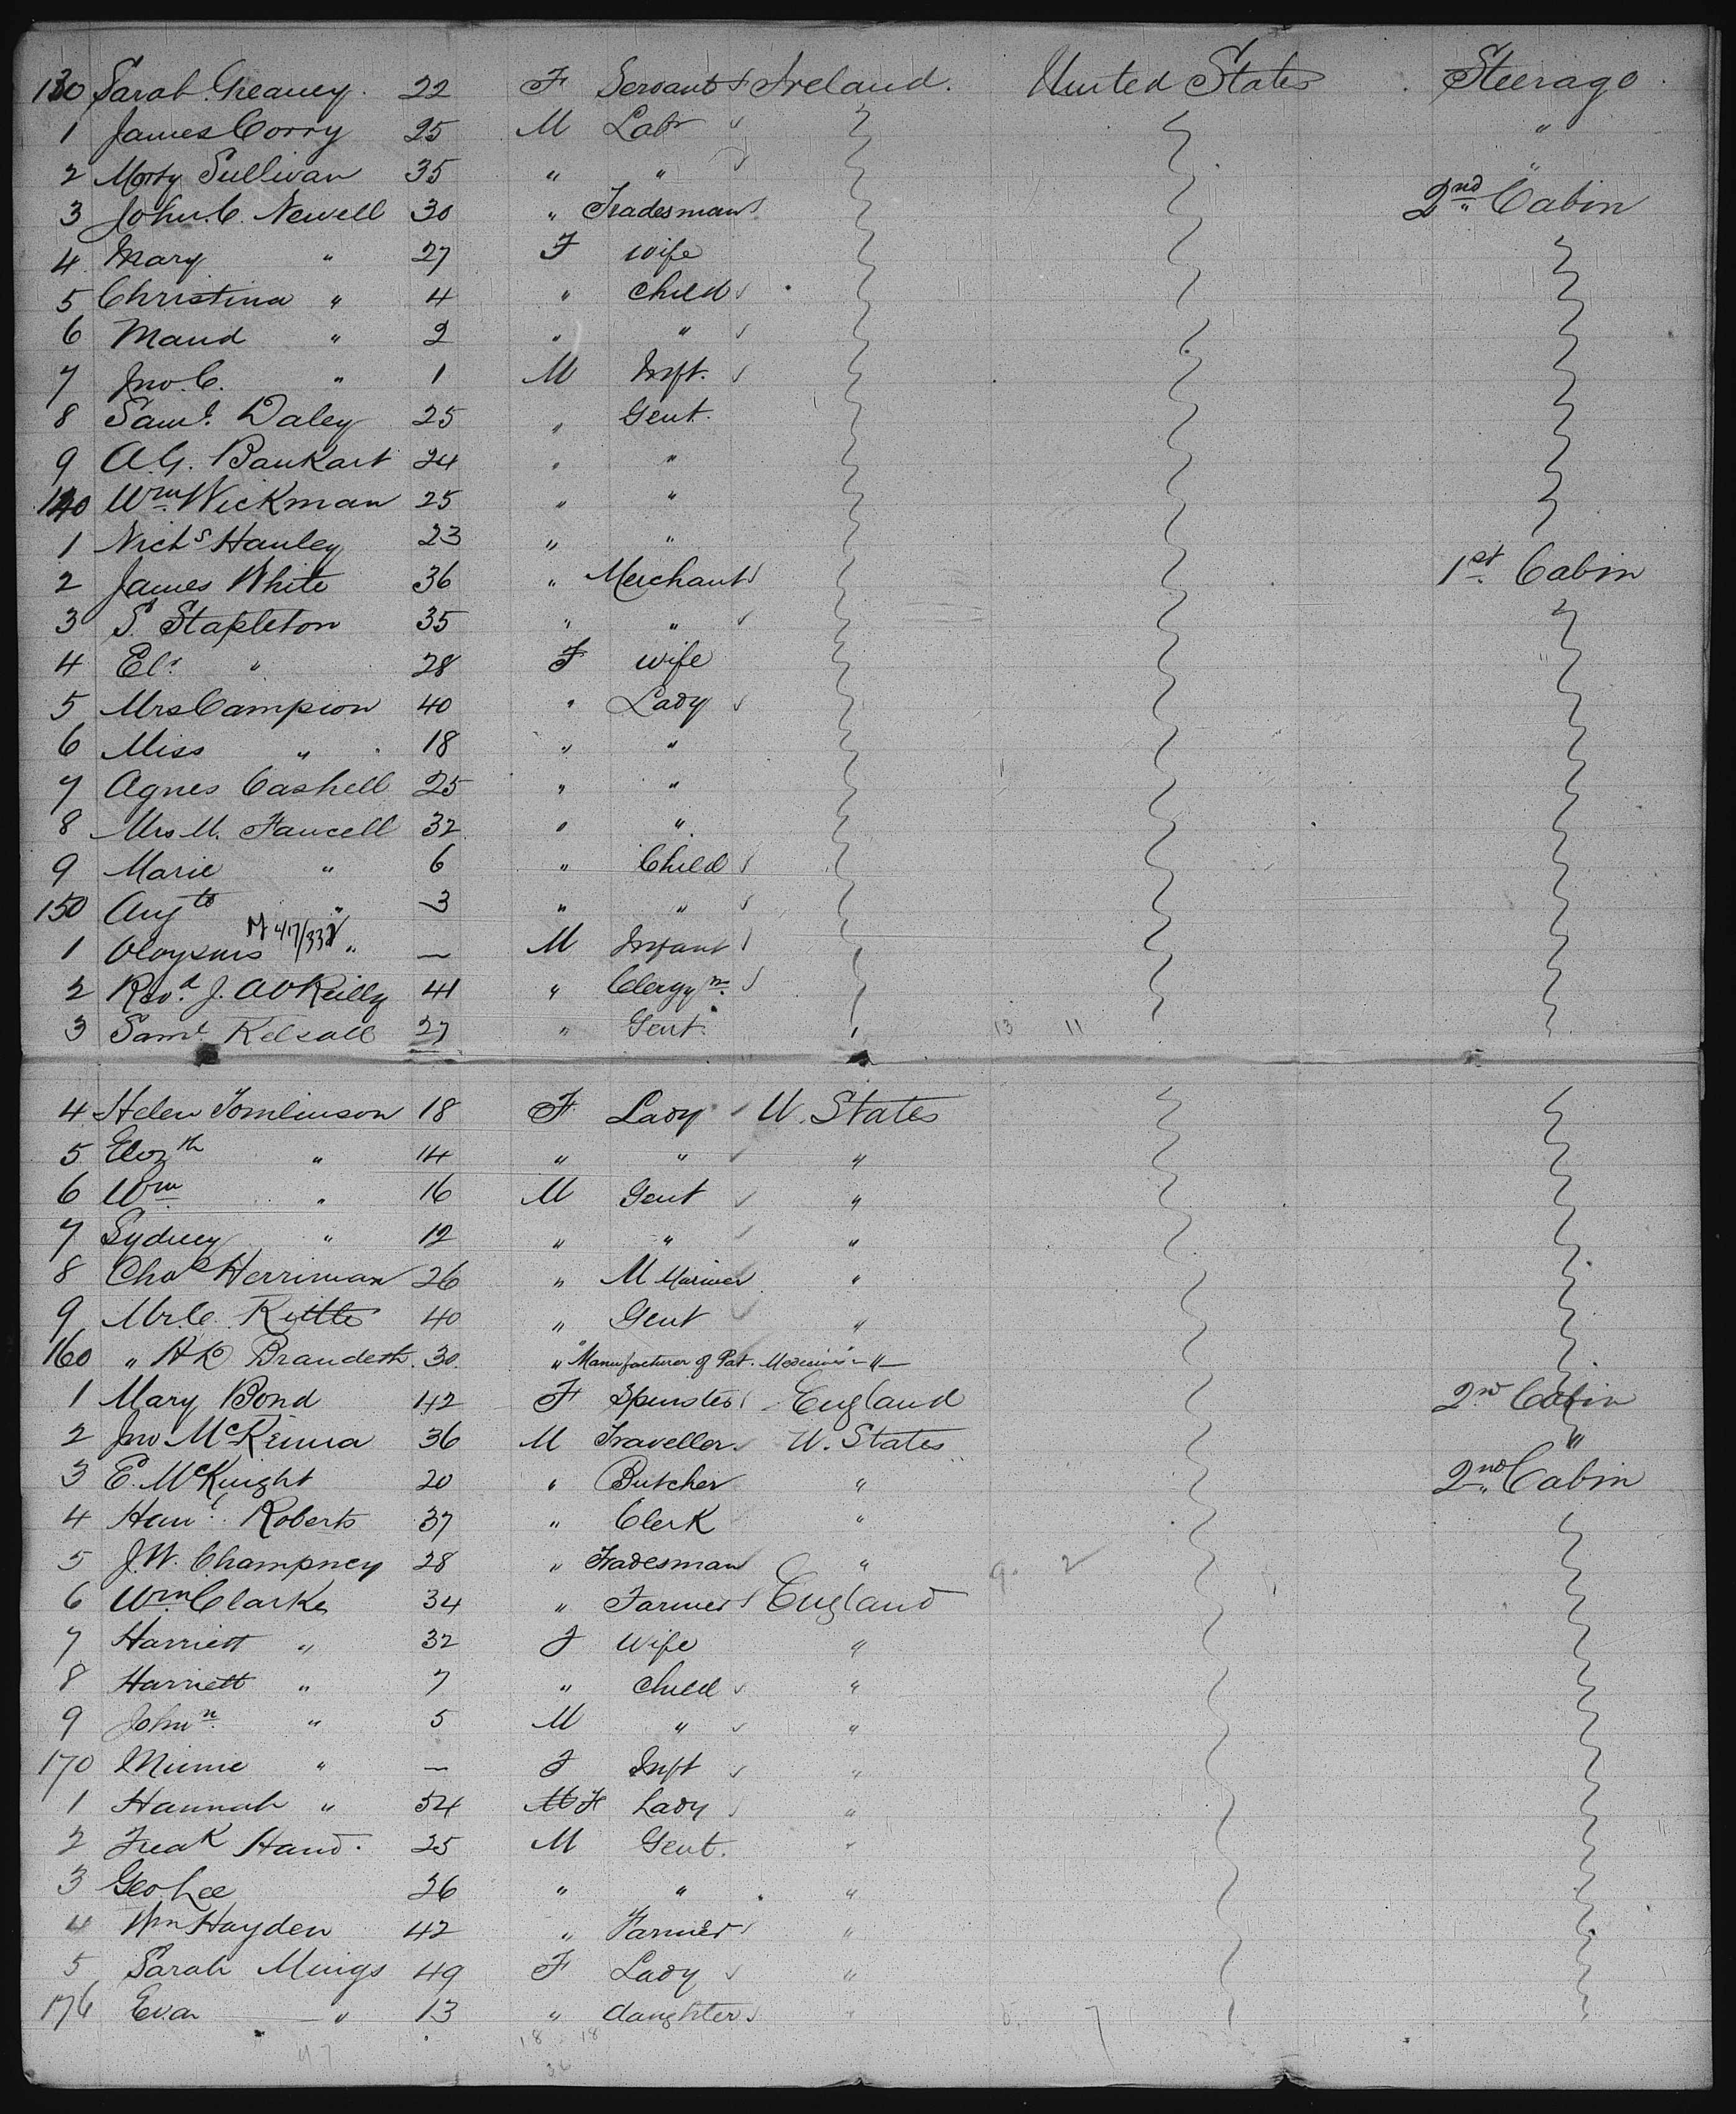 130 Sarah Greaney. 22 F Servant Ireland. United States Steerage
1 James Corry 25 M Labr "
2 Morty Sullivan 35 " " "
3 John. C. Newell 30 " Tradesman 2nd Cabin
4 Mary " 27 F wife
5 Christina " 4 " Child
6 Maud " 2 " "
7 Jno. C. " 1 M Inft.
8 Saml. Daley 25 " Gent.
9 A.G. Bankart 24 " "
140 Wm Wickman 25 " "
1 Nichs Hanley 23 " "
2 James White 36 " Merchant 1st Cabin
3 S. Stapleton 35 " "
4 Elr " 28 F wife
5 Mrs Campion 40 " Lady
6 Miss " 18 " "
7 Agnes Cashell 25 " "
8 Mrs M. Faucell 32 " "
9 Marie " 6 " Child
150 Augta " 3 " "
1 Aloysius " — M Infant
2 Revd. J. A O'Reilly 41 " Clergyn.
3 Saml. Kelsall 27 " Gent. " 13 11
4 Helen Tomlinson 18 F Lady U. States
5 Elizth " 14 " " "
6 Wm " 16 M Gent "
7 Sydney " 12 " " "
8 Chas Herriman 26 " M Mariner "
9 Mr C. Kittle 40 " Gent "
160 " H K Brandeth. 30 " "Manufacturer of Pat. Medicines" "
1 Mary Bond 42 F Spinster England 2nd Cabin
2 Jno McKenna 36 M Traveller U. States "
3 E. McKnight 20 " Butcher " 2nd Cabin
4 Roberts 37 " Clerk "
5 J.W. Champney 28 " Tradesman " 9. 2
6 Wm Clarke 34 " Farmer England
7 Harriett " 32 F Wife "
8 Harriett " 7 " Child "
9 Johnn. " 5 M " "
170 Minnie " — F Inft "
1 Hannah " 54 M F Lady "
2 Freak Hand. 25 M Gent. "
3 Geo Lee 26 " " "
4 Wm Hayden 42 " Farmer "
5 Sarah Mings 49 F Lady "
176 Eva " 13 " daughter " 7
18 18
47 36